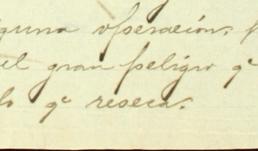 guna operación.
el gran peligro qe
lo qe reseca.